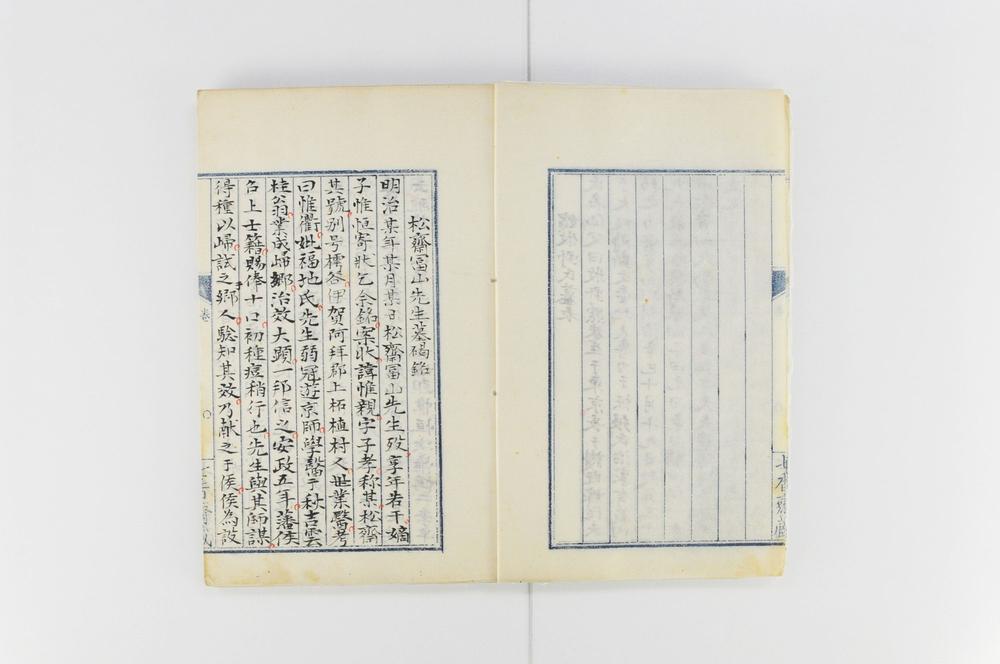 松齋冨山先生墓碣銘
明治某年某月某日松齋冨山先生歿享年若干嫡
子惟恒寄狀乞余銘案狀諱惟親字子孝称某松齋
其號別号樗谷伊賀阿拜郡上柘植村人世業醫考
曰惟衢妣福地氏先生弱冠遊京師學醫于秋吉雲
桂翁業成歸鄉治效大顕一邦信之安政五年藩侯
召上士籍賜俸十口初種痘稍行也先生與其師謀
得種以歸試之鄉人驗知其效乃献之于侯侯為設
卷